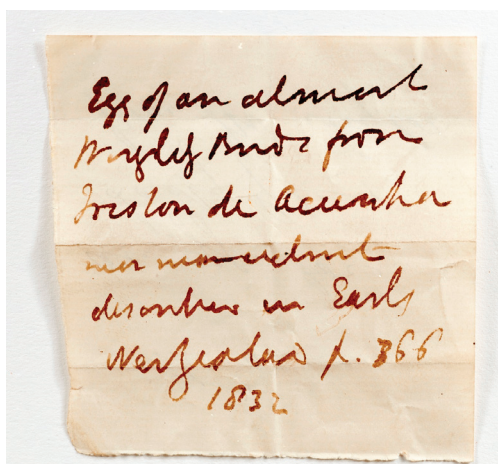 Egg of an almost
Wingless Bird from
Tristan de Acunha
now nonexistent
described in Earle
New Zealand p. 366
1832